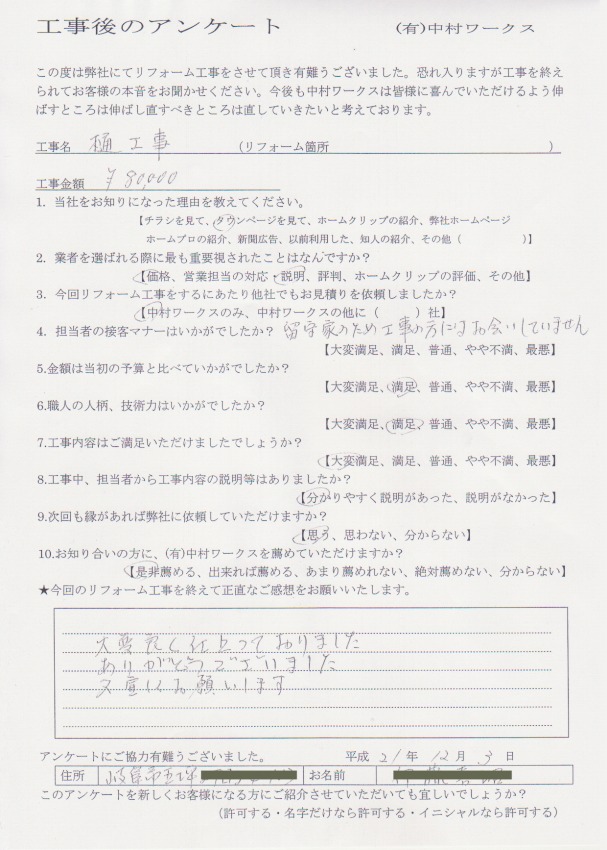 工事後のアンケート (有)中村ワークス
この度は弊社にてリフォーム工事をさせて頂き有難うございました。恐れ入りますが工事を終え
られてお客様の本音をお聞かせください。今後も中村ワークスは皆様に喜んでいただけるよう伸
ばすところは伸ばし直すべきところは直していきたいと考えております。
工事名 樋工事 (リフォーム箇所 )
工事金額 ¥80,000
1. 当社をお知りになった理由を教えてください。
【チラシを見て、タウンページを見て、ホームクリップの紹介、弊社ホームページ
ホームプロの紹介、新聞広告、以前利用した、知人の紹介、その他( )】
2. 業者を選ばれる際に最も重要視されたことはなんですか?
【価格、営業担当の対応・説明、評判、ホームクリップの評価、その他】
3. 今回リフォーム工事をするにあたり他社でもお見積りを依頼しましたか?
【中村ワークスのみ、中村ワークスの他に( )社】
4. 担当者の接客マナーはいかがでしたか? 留守家のため工事の方にはお会いしていません
【大変満足、満足、普通、やや不満、最悪】
5.金額は当初の予算と比べていかがでしたか?
【大変満足、満足、普通、やや不満、最悪】
6.職人の人柄、技術力はいかがでしたか?
【大変満足、満足、普通、やや不満、最悪】
7.工事内容はご満足いただけましたでしょうか?
【大変満足、満足、普通、やや不満、最悪】
8.工事中、担当者から工事内容の説明等はありましたか?
【分かりやすく説明があった、説明がなかった】
9.次回も縁があれば弊社に依頼していただけますか?
【思う、思わない、分からない】
10.お知り合いの方に、(有)中村ワークスを薦めていただけますか?
【是非薦める、出来れば薦める、あまり薦めれない、絶対薦めない、分からない】
★今回のリフォーム工事を終えて正直なご感想をお願いいたします。
大変乳く仕上っておりました
ありがとうございました
又宜しくお願いします
アンケートにご協力有難うございました。 平成 21 年 12 月 3 日
住所 岐阜市 お名前
このアンケートを新しくお客様になる方にご紹介させていただいても宜しいでしょうか?
(許可する・名字だけなら許可する・イニシャルなら許可する)